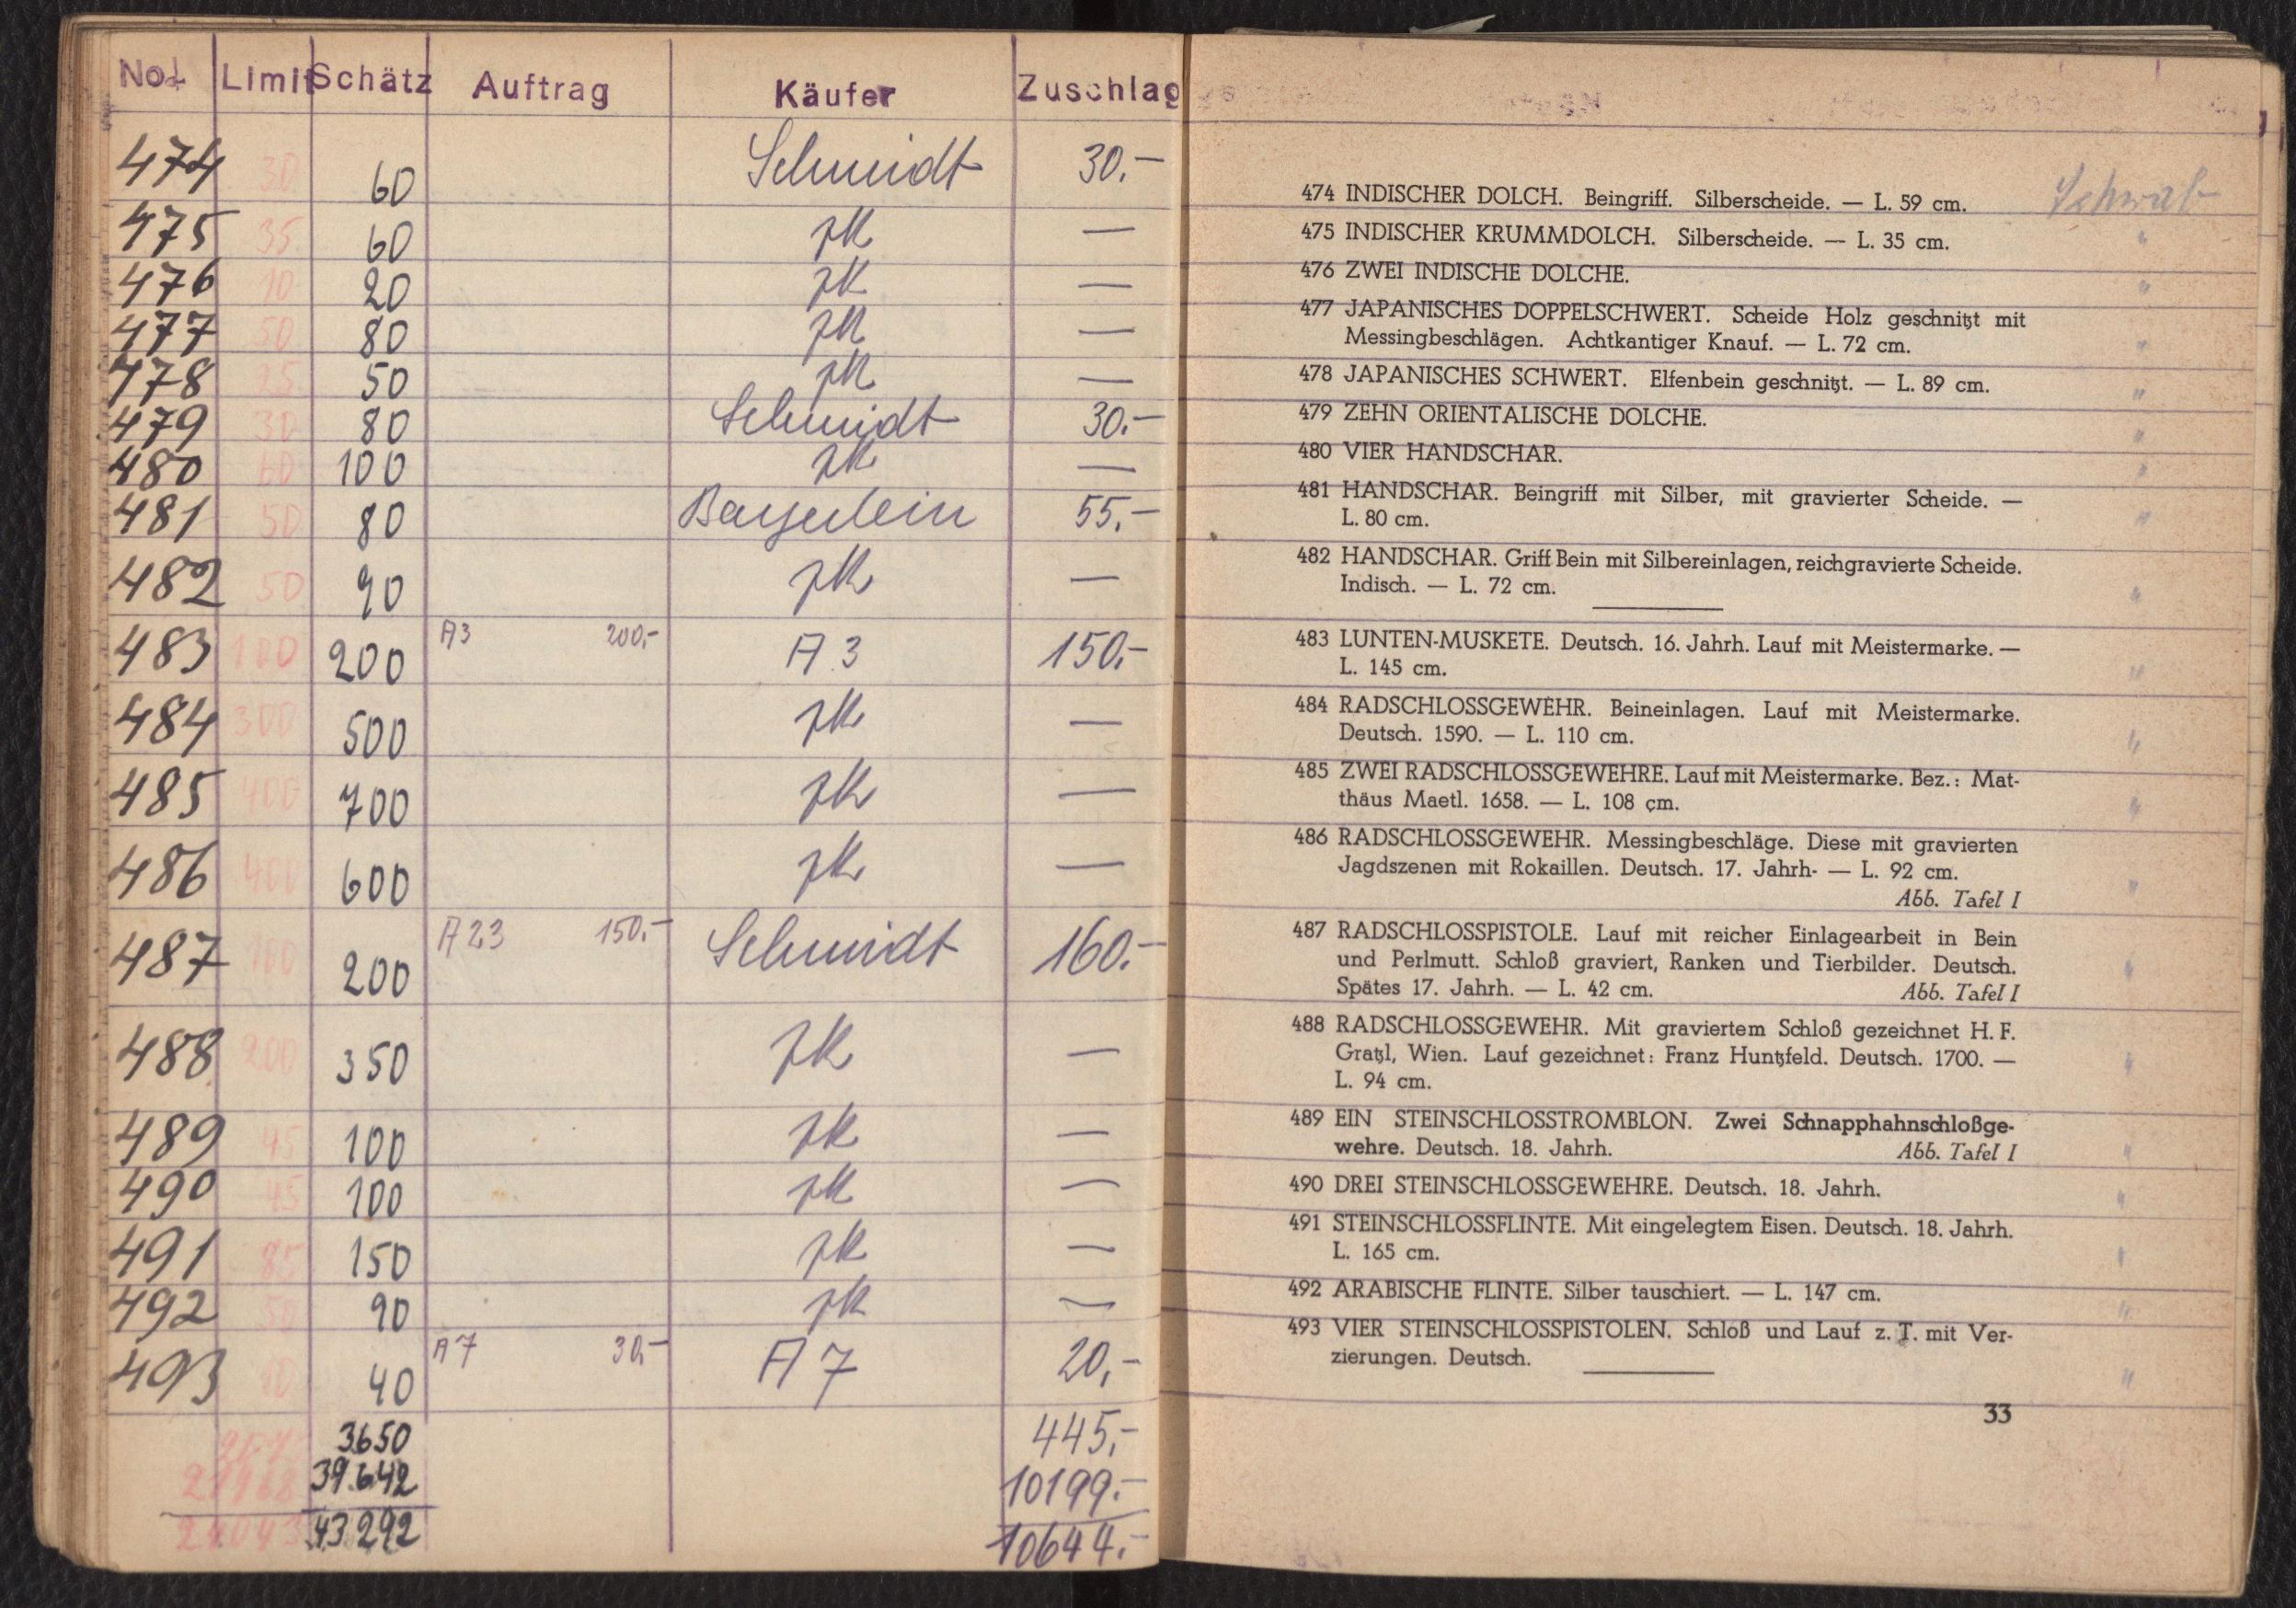 No. Limit Schätz Auftrag Käufer Zuschlag
474 30 60 Schmidt 30.-
475 35 60 zk —
476 10 20 zk —
477 50 80 zk —
478 25 50 zk —
479 30 80 Schmidt 30.-
480 60 100 zk —
481 50 80 Bayerlein 55.-
482 50 90 zk —
483 100 200 A3 200,- A 3 150,-
484 300 500 zk —
485 400 700 zk —
486 400 600 zk —
487 100 200 A23 150.- Schmidt 160.-
488 200 350 zk —
489 45 100 zk —
490 45 100 zk —
491 85 150 zk —
492 50 90 zk —
493 40 A7 30,- A 7 20,-
3650 445,-
39.642 10199.-
43292 10644.-
474 INDISCHER DOLCH. Beingriff. Silberscheide. — L. 59 cm. Schwab
475 INDISCHER KRUMMDOLCH. Silberscheide. — L. 35 cm. "
476 ZWEI INDISCHE DOLCHE. "
477 JAPANISCHES DOPPELSCHWERT. Scheide Holz geschnitzt mit
Messingbeschlägen. Achtkantiger Knauf. — L. 72 cm. "
478 JAPANISCHES SCHWERT. Elfenbein geschnitzt. — L. 89 cm. "
479 ZEHN ORIENTALISCHE DOLCHE. "
480 VIER HANDSCHAR. "
481 HANDSCHAR. Beingriff mit Silber, mit gravierter Scheide. —
L. 80 cm. "
482 HANDSCHAR. Griff Bein mit Silbereinlagen, reichgravierte Scheide.
Indisch. — L. 72 cm. "
483 LUNTEN-MUSKETE. Deutsch. 16. Jahrh. Lauf mit Meistermarke. —
L. 145 cm. "
484 RADSCHLOSSGEWEHR. Beineinlagen. Lauf mit Meistermarke.
Deutsch. 1590. — L. 110 cm. "
485 ZWEI RADSCHLOSSGEWEHRE. Lauf mit Meistermarke. Bez.: Mat-
thäus Maetl. 1658. — L. 108 cm. "
486 RADSCHLOSSGEWEHR. Messingbeschläge. Diese mit gravierten
Jagdszenen mit Rokaillen. Deutsch. 17. Jahrh- — L. 92 cm.
Abb. Tafel I "
487 RADSCHLOSSPISTOLE. Lauf mit reicher Einlagearbeit in Bein
und Perlmutt. Schloß graviert, Ranken und Tierbilder. Deutsch. "
Spätes 17. Jahrh. — L. 42 cm. Abb. Tafel I
488 RADSCHLOSSGEWEHR. Mit graviertem Schloß gezeichnet H. F.
Gratzl, Wien. Lauf gezeichnet: Franz Huntzfeld. Deutsch. 1700. — "
L. 94 cm.
489 EIN STEINSCHLOSSTROMBLON. Zwei Schnapphahnschloßge-
wehre. Deutsch. 18. Jahrh. Abb. Tafel I "
490 DREI STEINSCHLOSSGEWEHRE. Deutsch. 18. Jahrh. "
491 STEINSCHLOSSFLINTE. Mit eingelegtem Eisen. Deutsch. 18. Jahrh.
L. 165 cm. "
492 ARABISCHE FLINTE. Silber tauschiert. — L. 147 cm. "
493 VIER STEINSCHLOSSPISTOLEN. Schloß und Lauf z. T. mit Ver-
zierungen. Deutsch. "
33